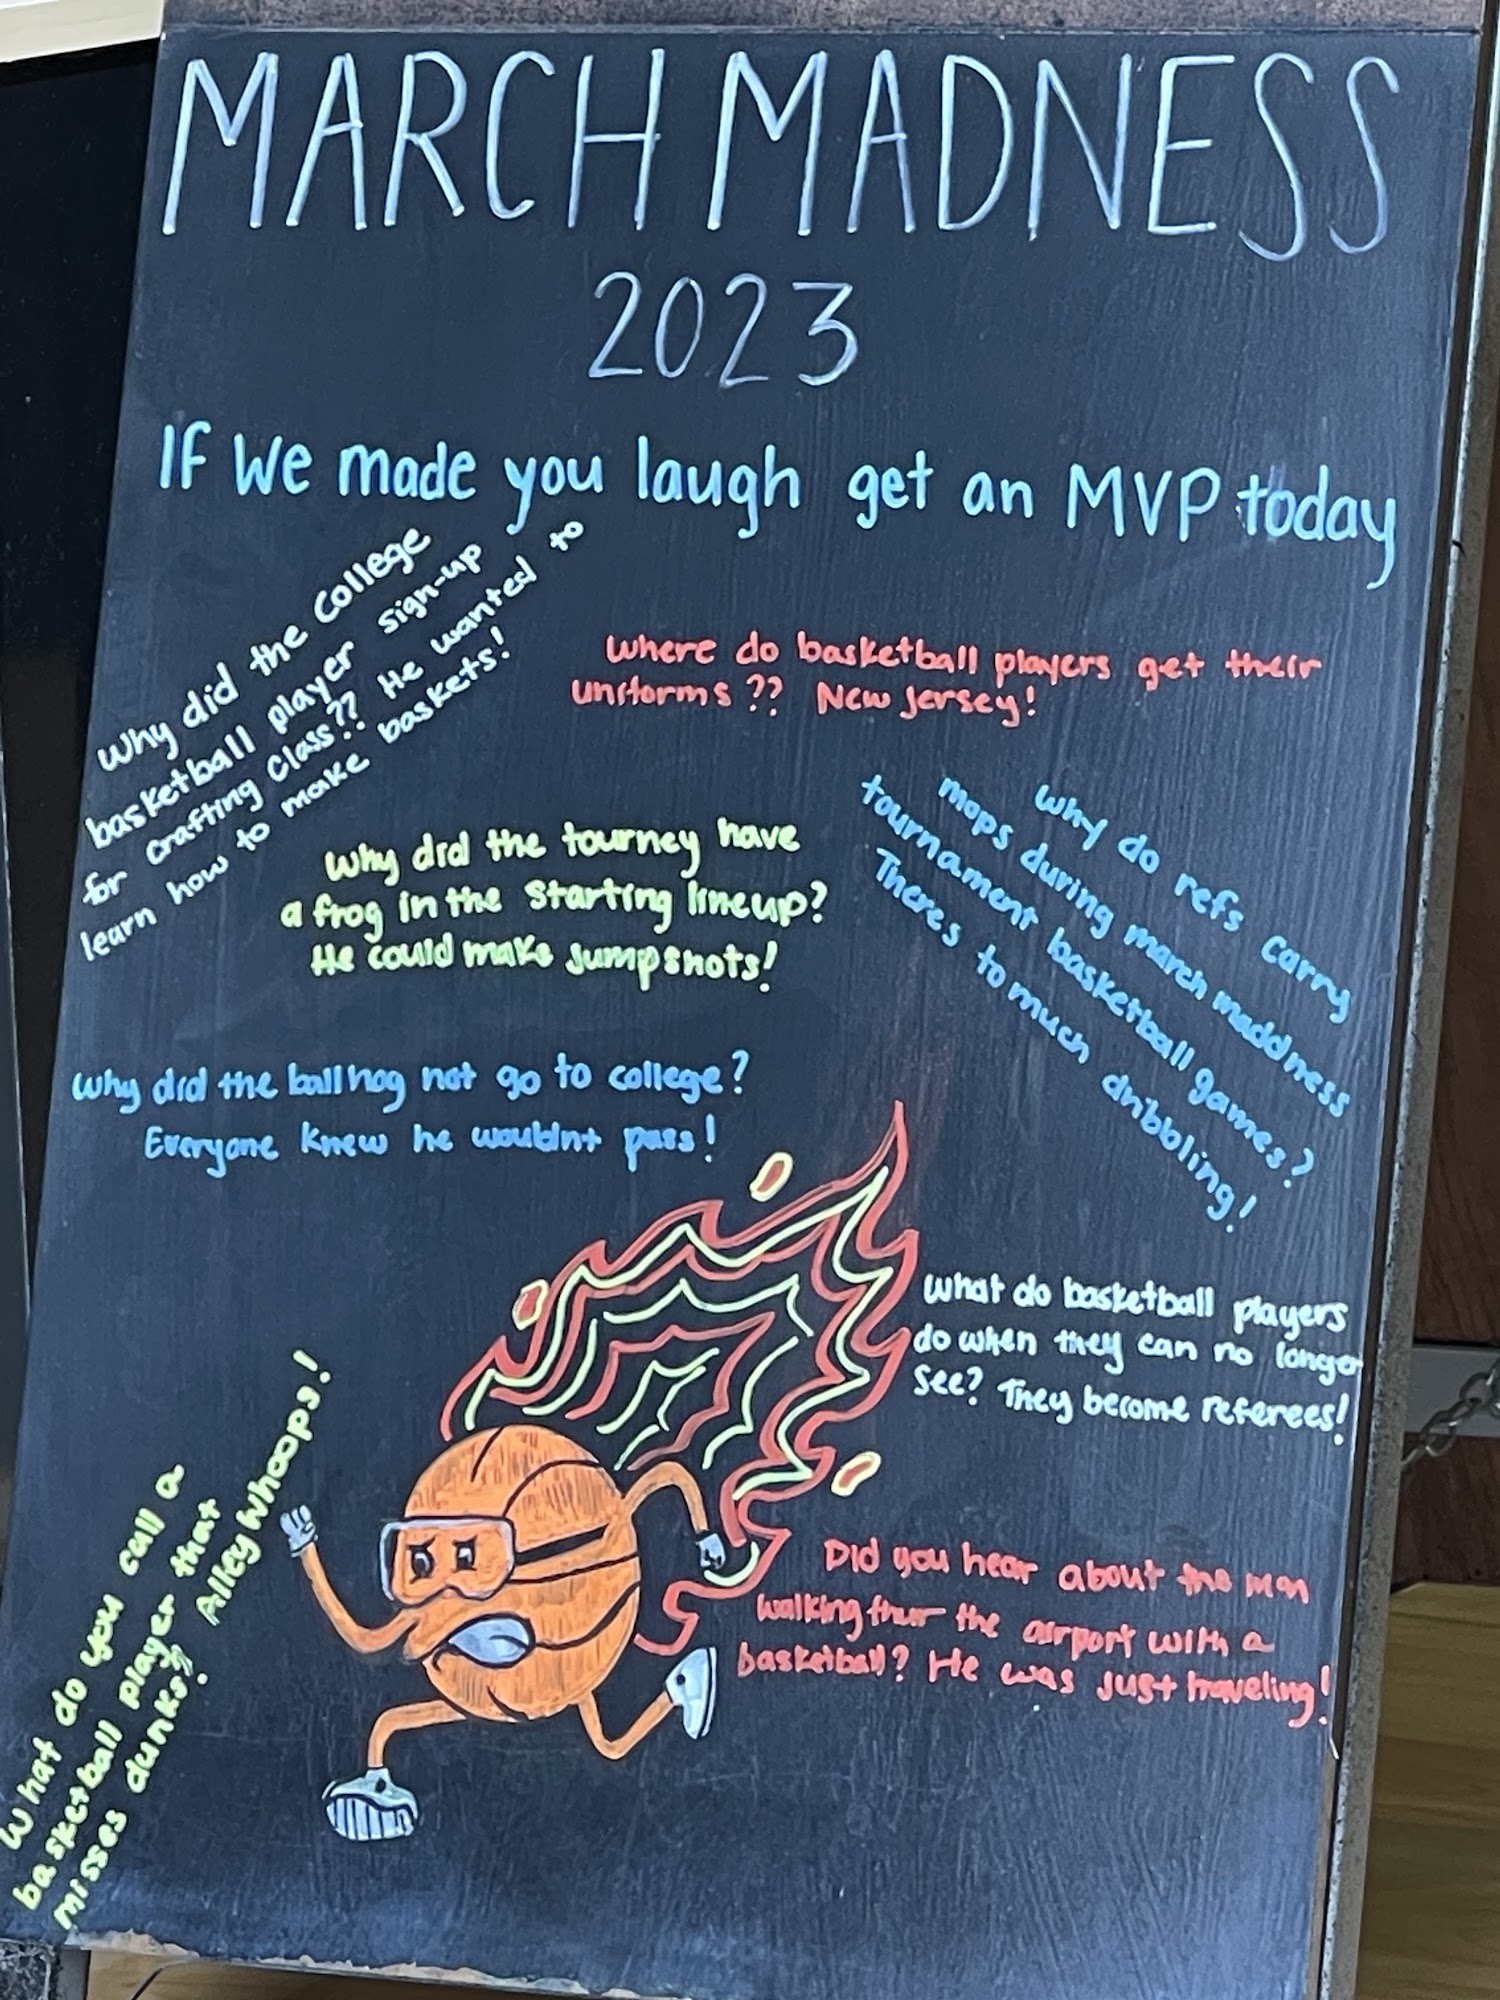 MARCH MADNESS
2023
If We made you laugh get an MVP today
Why did the College
basketball player sign-up
for crafting Class?? He wanted to
learn how to make baskets!
Where do basketball players get their
uniforms?? New Jersey!
Why did the tourney have
a frog in the starting lineup?
He could make jumpshots!
Why do refs carry
mops during march maddness
tournament basketball games?
Theres to much dribbling!
Why did the ball hog not go to college?
Everyone knew he wouldnt pass!
What do basketball players
do when they can no longer
see? They become referees!
What do you call a
basketball player that
misses dunks? Alley Whoops!
Did you hear about the man
walking thur the airport with a
basketball? He was just traveling!